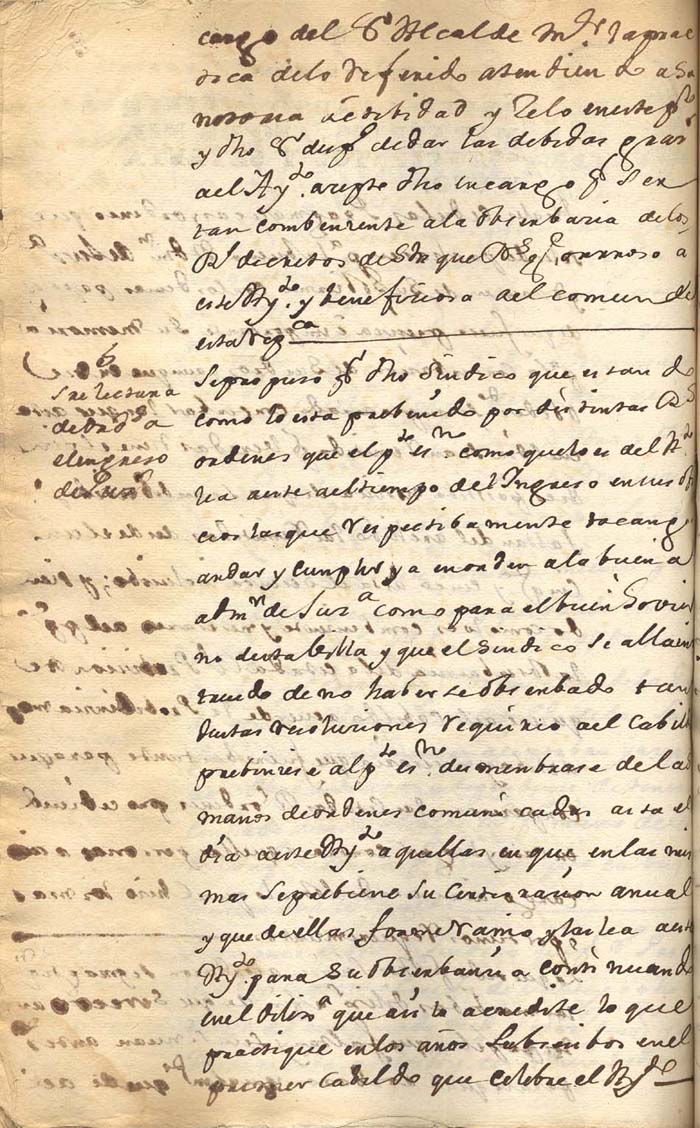 cargo del Sr Alcalde Mr la prac
tica delo referido atendiendo a su
notoria utilidad y
y dho Sr de dar las debidas gras
ael Aydo. azepto dho encargo pr ser
tan combenrente ala obserbaria de los
Rs decretos de S M que Ds ge, onrroso a
este Aydo. y beneficiosa ael comun de
esta
Se lectura
de
el ingreso
de
Se propuso pr dho Sindico que estan do
como lo esta prebenido por distintas Rs
ordenes que el pte esno como que lo es del Ayto
lea a este ael tiempo del Ingreso en sus ofi
cios las que respectibamente tocan
andar y cumplir, ya en orden a la buena
admon de Jusa como para el buen Govier
no desta Villa y que el Sindico se alla ins
truido de no haber se obserbado tan
Justas resoluciones requirio ael Cabil
prebiniese al pte esno de
manos de ordenes comunicadas asta el
dia a este Aydo aquellas en que en las mis
mas se prebiene su anual
y que de ellas forme ramo y las lea a este
Aydo. para su obserbanzia continuando
en el Dilixa que asi lo acredite lo que
practique en los años Subsesibos en el
primer Cabildo que celebre el Aydo